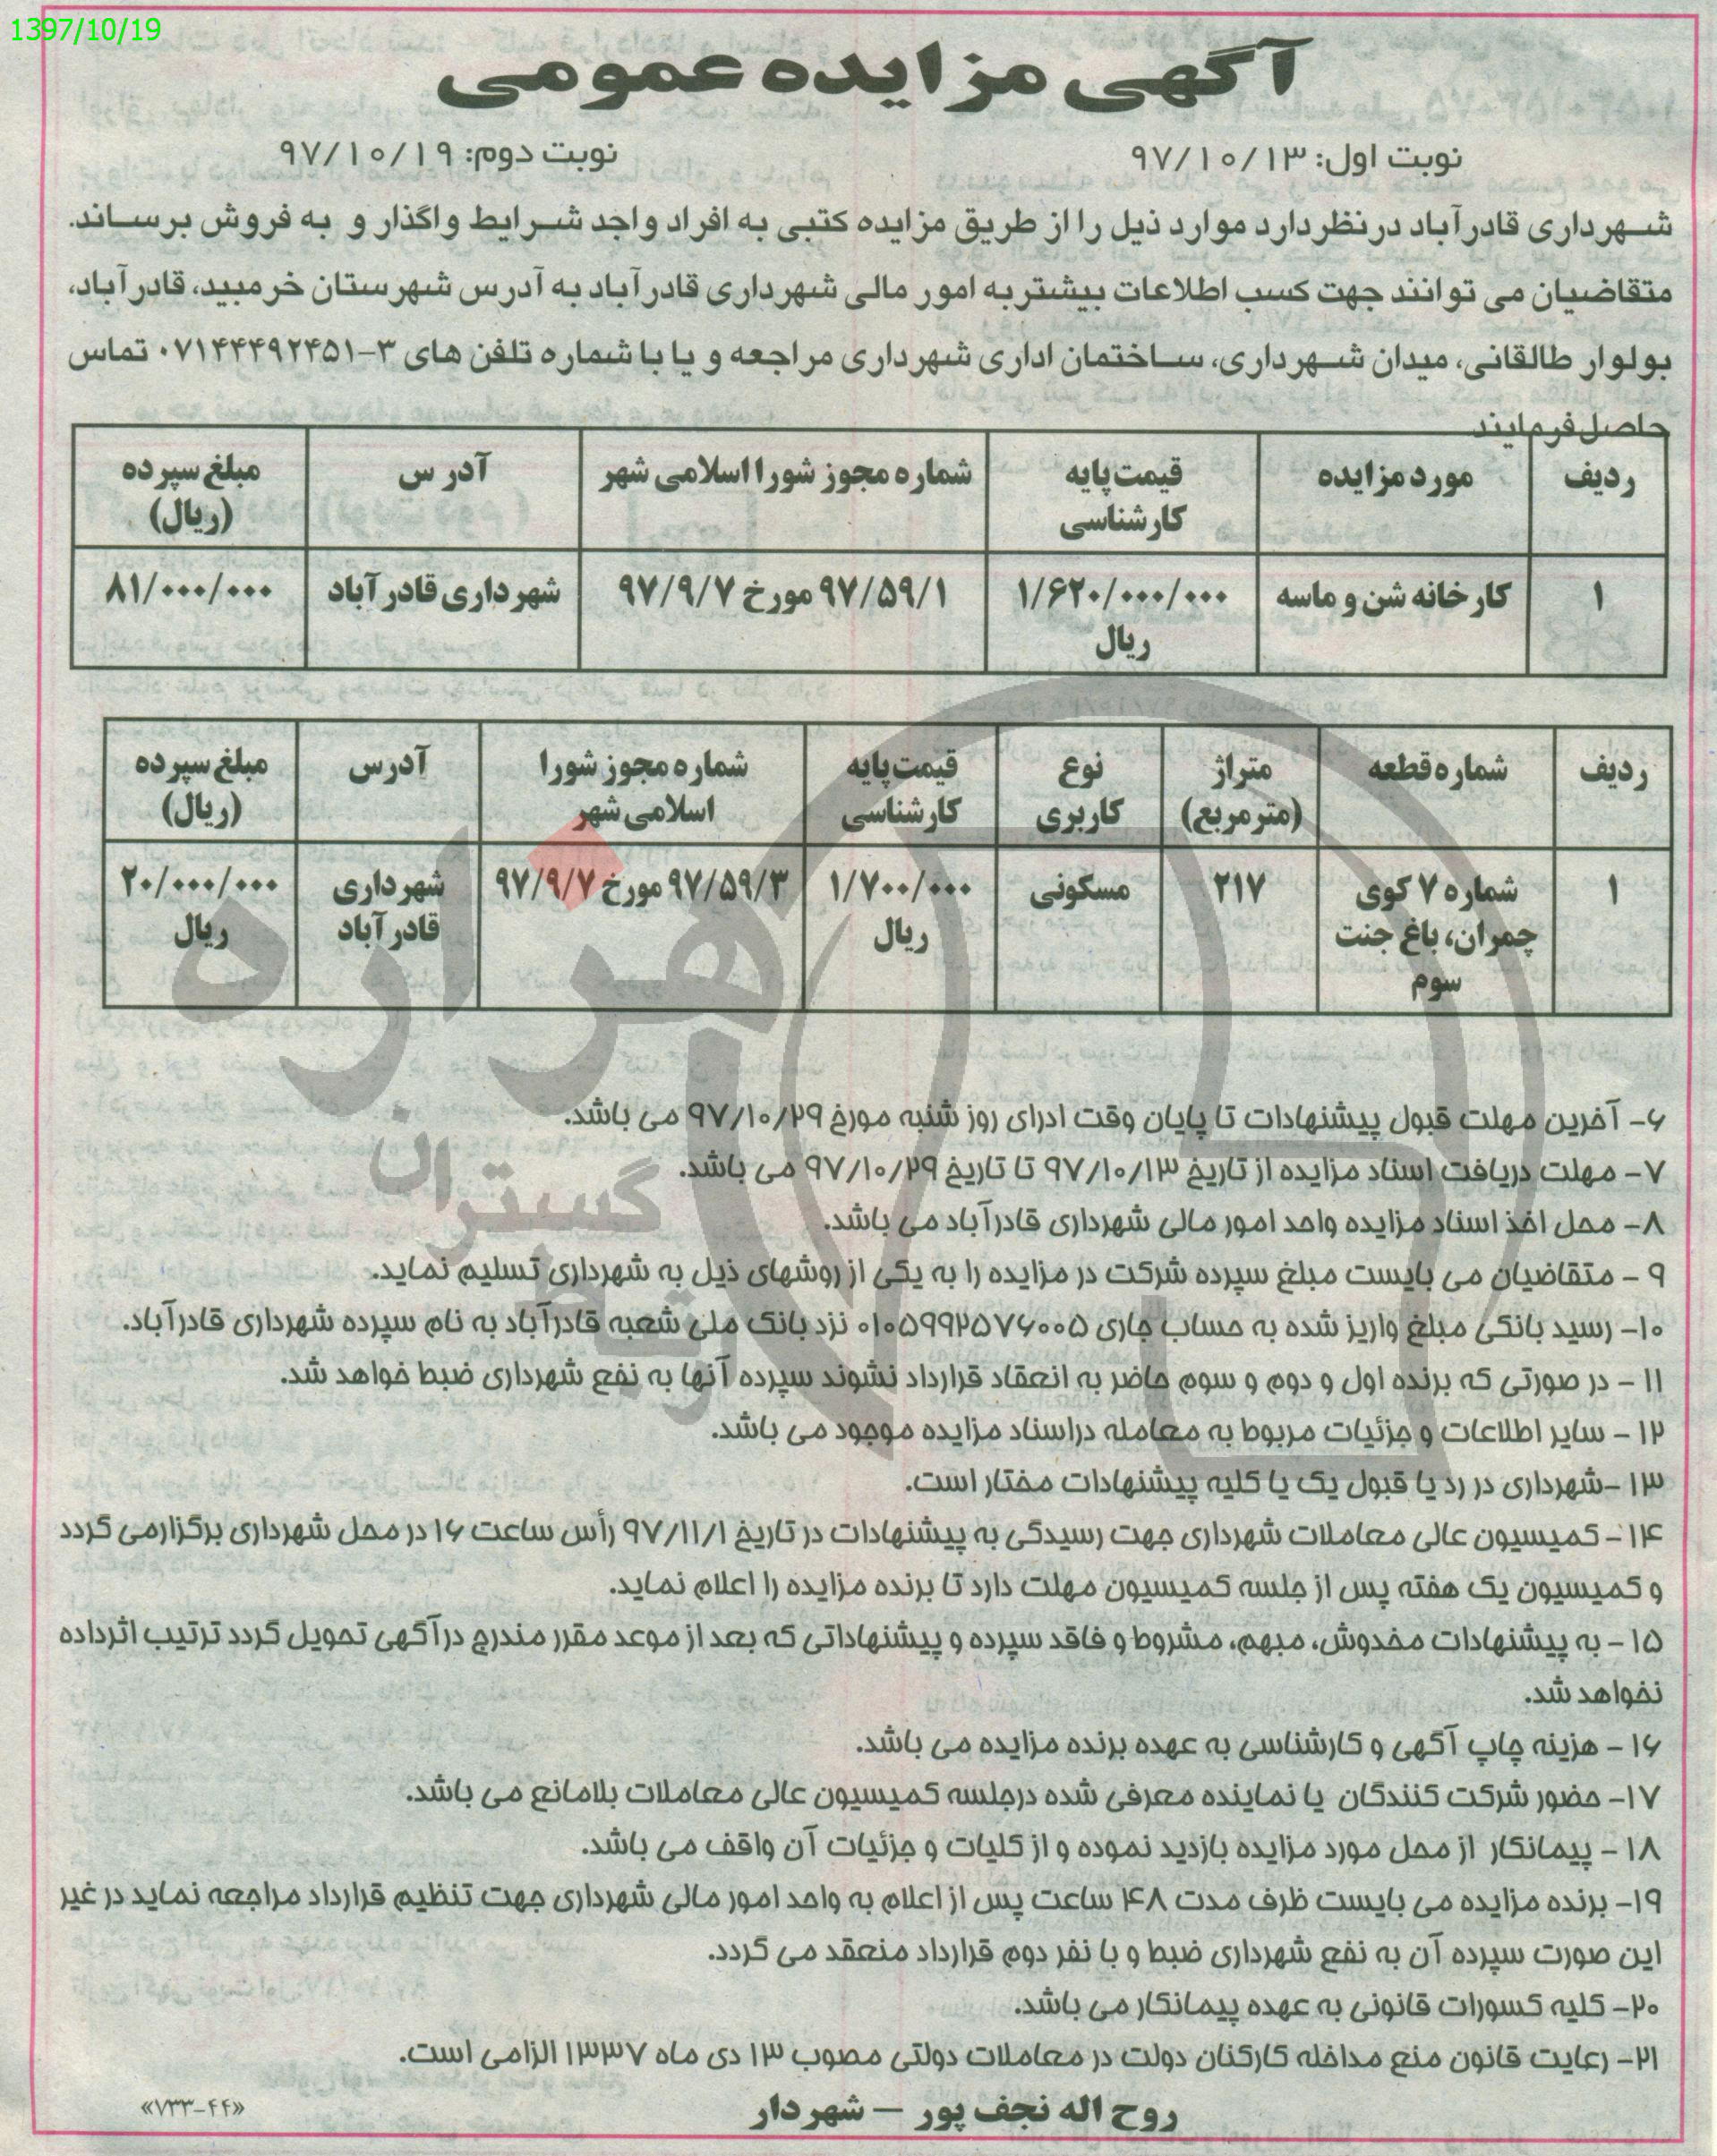 1397/10/19
آگهی مزایده عمومی
نوبت اول: ۹۷/۱۰/۱۳
نوبت دوم: ۹۷/۱۰/۱۹
شهرداری قادرآباد درنظردارد موارد ذیل را از طریق مزایده کتبی به افراد واجد شرایط واگذار و به فروش برساند.
متقاضیان می توانند جهت کسب اطلاعات بیشتربه امور مالی شهرداری قادرآباد به آدرس شهرستان خرمبید، قادرآباد،
بولوار طالقانی، میدان شهرداری، ساختمان اداری شهرداری مراجعه و یا با شماره تلفن های ۳-۰۷۱۴۴۴۹۲۴۵۱ تماس
حاصل فرمایند
ردیف | مورد مزایده | قیمت پایه کارشناسی | شماره مجوز شورا اسلامی شهر | آدرس | مبلغ سپرده (ریال)
۱ | کارخانه شن و ماسه | ۱/۶۲۰/۰۰۰/۰۰۰ ریال | ۹۷/۵۹/۱ مورخ ۹۷/۹/۷ | شهرداری قادرآباد | ۸۱/۰۰۰/۰۰۰
ردیف | شماره قطعه | متراژ (مترمربع) | نوع کاربری | قیمت پایه کارشناسی | شماره مجوز شورا اسلامی شهر | آدرس | مبلغ سپرده (ریال)
۱ | شماره ۷ کوی چمران، باغ جنت سوم | ۲۱۷ | مسکونی | ۱/۷۰۰/۰۰۰ ریال | ۹۷/۵۹/۳ مورخ ۹۷/۹/۷ | شهرداری قادرآباد | ۲۰/۰۰۰/۰۰۰ ریال
هزاره
گستران
رباط
۶- آخرین مهلت قبول پیشنهادات تا پایان وقت ادرای روز شنبه مورخ ۹۷/۱۰/۲۹ می باشد.
۷- مهلت دریافت اسناد مزایده از تاریخ ۹۷/۱۰/۱۳ تا تاریخ ۹۷/۱۰/۲۹ می باشد.
۸- محل اخذ اسناد مزایده واحد امور مالی شهرداری قادرآباد می باشد.
۹ - متقاضیان می بایست مبلغ سپرده شرکت در مزایده را به یکی از روشهای ذیل به شهرداری تسلیم نماید.
۱۰- رسید بانکی مبلغ واریز شده به حساب جاری ۰۱۰۵۹۹۲۵۷۶۰۰۵ نزد بانک ملی شعبه قادرآباد به نام سپرده شهرداری قادرآباد.
۱۱ - در صورتی که برنده اول و دوم و سوم حاضر به انعقاد قرارداد نشوند سپرده آنها به نفع شهرداری ضبط خواهد شد.
۱۲ - سایر اطلاعات و جزئیات مربوط به معامله دراسناد مزایده موجود می باشد.
۱۳ -شهرداری در رد یا قبول یک یا کلیه پیشنهادات مختار است.
۱۴- کمیسیون عالی معاملات شهرداری جهت رسیدگی به پیشنهادات در تاریخ ۹۷/۱۱/۱ رأس ساعت ۱۶ در محل شهرداری برگزارمی گردد
و کمیسیون یک هفته پس از جلسه کمیسیون مهلت دارد تا برنده مزایده را اعلام نماید.
۱۵ - به پیشنهادات مخدوش، مبهم، مشروط و فاقد سپرده و پیشنهاداتی که بعد از موعد مقرر مندرج درآگهی تحویل گردد ترتیب اثرداده
نخواهد شد.
۱۶ - هزینه چاپ آگهی و کارشناسی به عهده برنده مزایده می باشد.
۱۷- حضور شرکت کنندگان یا نماینده معرفی شده درجلسه کمیسیون عالی معاملات بلامانع می باشد.
۱۸ - پیمانکار از محل مورد مزایده بازدید نموده و از کلیات و جزئیات آن واقف می باشد.
۱۹- برنده مزایده می بایست ظرف مدت ۴۸ ساعت پس از اعلام به واحد امور مالی شهرداری جهت تنظیم قرارداد مراجعه نماید در غیر
این صورت سپرده آن به نفع شهرداری ضبط و با نفر دوم قرارداد منعقد می گردد.
۲۰- کلیه کسورات قانونی به عهده پیمانکار می باشد.
۲۱- رعایت قانون منع مداخله کارکنان دولت در معاملات دولتی مصوب ۱۳ دی ماه ۱۳۳۷ الزامی است.
روح اله نجف پور - شهردار
«۷۳۳-۴۴»